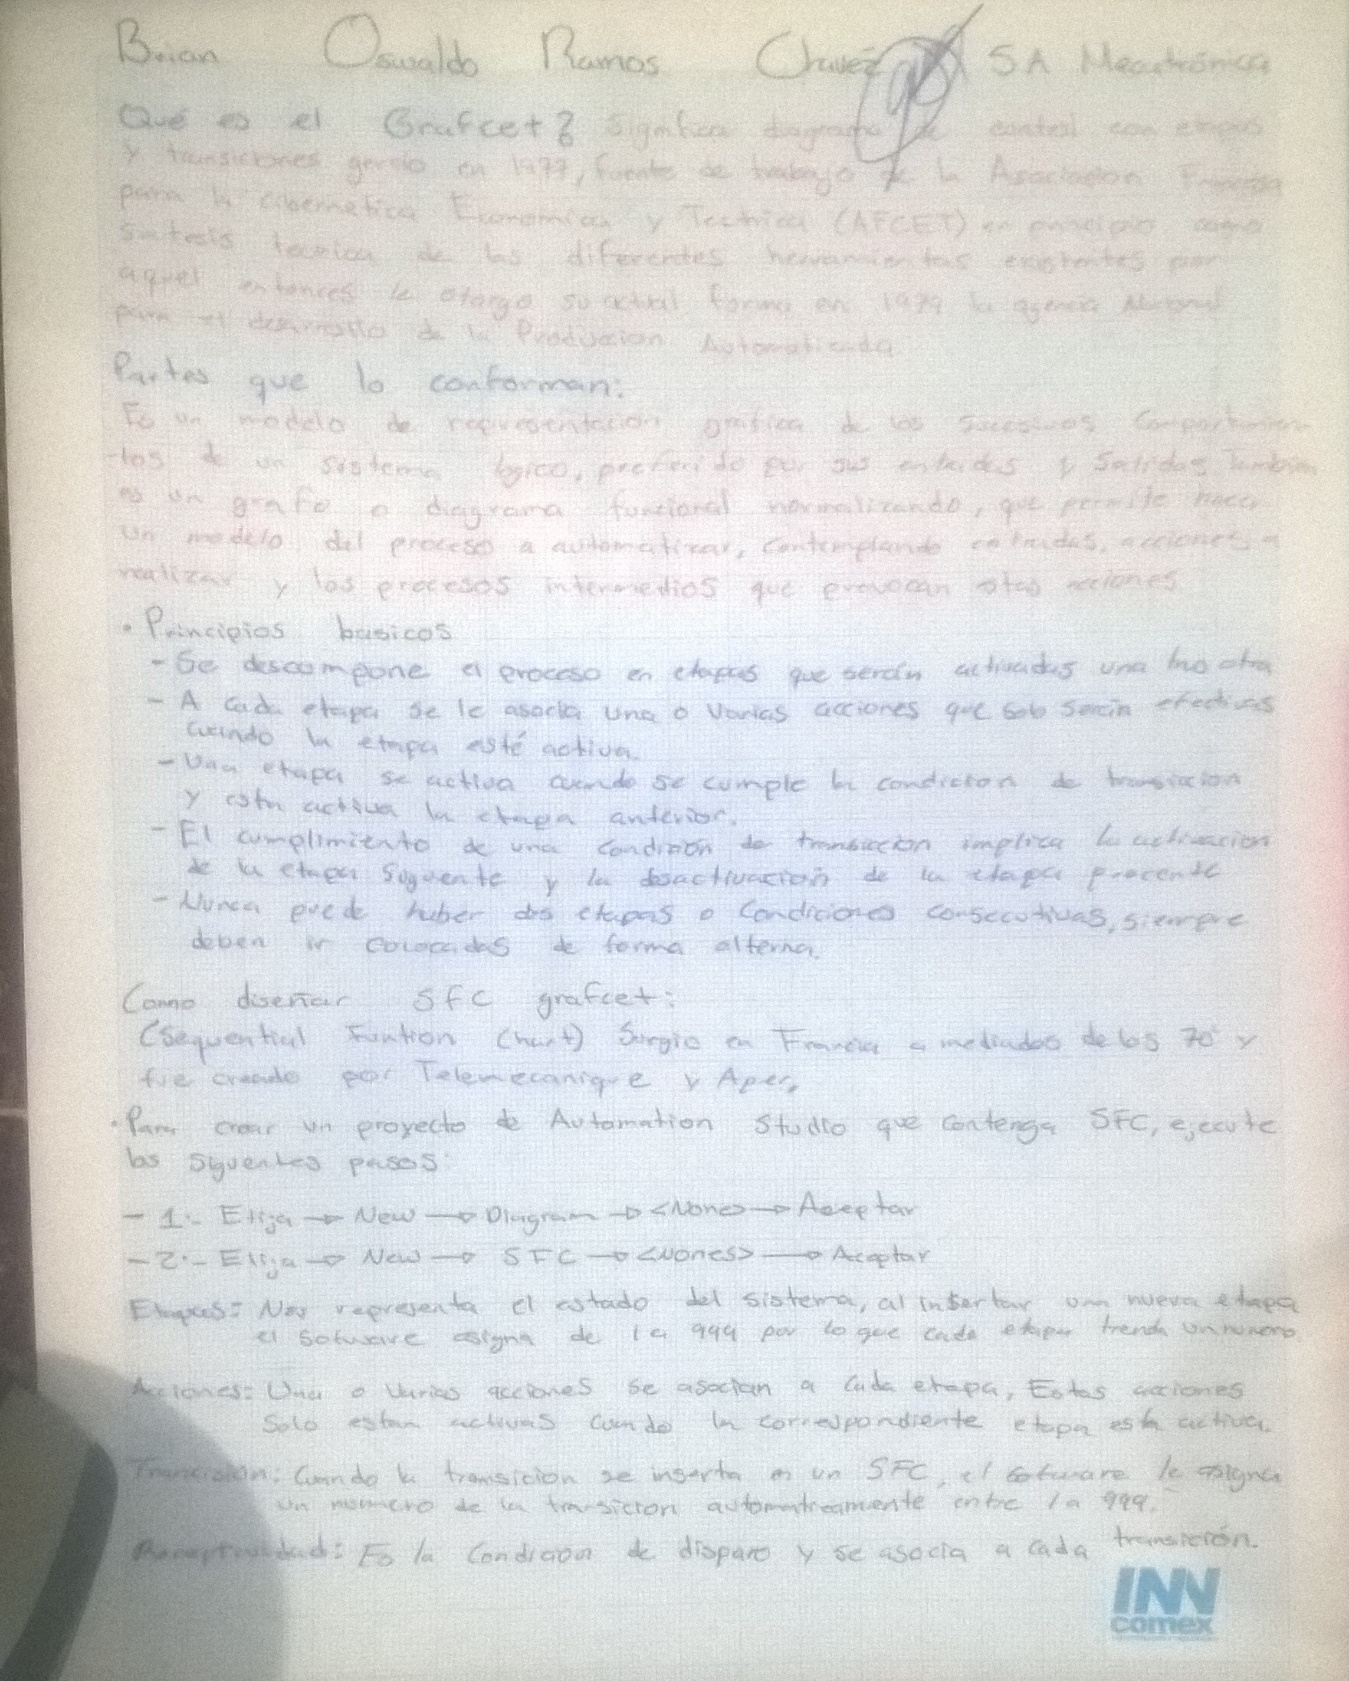 Brian Oswaldo Ramos Chavéz 5A Mecatrónica
Qué es el Grafcet? Significa diagrama de control con etapas
y transiciones gerolo en 1977, fuente de trabajo de la Asociacion Francesa
para la cibernetica Economica y Tectnica (AFCET) en principio como
sintesis tecnica de las diferentes herramientas existentes por
aquel entonces le otargo su actual forma en 1979 la agencia Nacional
para el desarrollo de la Produccion Automatizada
Partes que lo conforman:
Es un modelo de representacion gráfica de los sucesivos comportamien
-tos de un sistema logico, preferido por sus entradas y Salidas, Tambien
es un grafo o diagrama funcional normalizando, que permite hacer
un modelo del proceso a automatizar, contemplando entradas, acciones a
realizar y los procesos intermedios que provocan estas acciones.
• Principios basicos
- Se descompone el proceso en etapas que serán activadas una tras otra
- A cada etapa se le asocia una o varias acciones que solo serán efectivas
cuando la etapa esté activa.
- Una etapa se activa cuando se cumple la condicion de transicion
y esta activa la etapa anterior.
- El cumplimiento de una condición de transiccion implica la activacion
de la etapa siguente y la desactivación de la etapa procente
- Nunca puede haber dos etapas o condiciones consecutivas, siempre
deben ir colocadas de forma alterna.
Como diseñar SFC grafcet:
(Sequential Funtion Chart) Surgio en Francia a mediados de los 70' y
fue creado por Telemecanique y Aper.
• Para crear un proyecto de Automation Studio que contenga SFC, ejecute
los siguentes pasos:
- 1.- Elija → New → Diagram → <None> → Aceptar
- 2.- Elija → New → SFC → <Nones> → Aceptar
Etapas: Nos representa el estado del sistema, al insertar una nueva etapa
el Sotware asigna de 1 a 999 por lo que cada etapa trendra un numero
Acciones: Una o varias acciones se asocian a cada etapa, Estas acciones
Solo estan activas cuando la correspondiente etapa está activa.
Trancision: Cuando la transicion se inserta en un SFC, el sotware le asigna
un numero de la transicion automaticamente entre 1 a 999.
Receptividad: Es la Condicion de disparo y se asocia a cada transición.
INN
comex